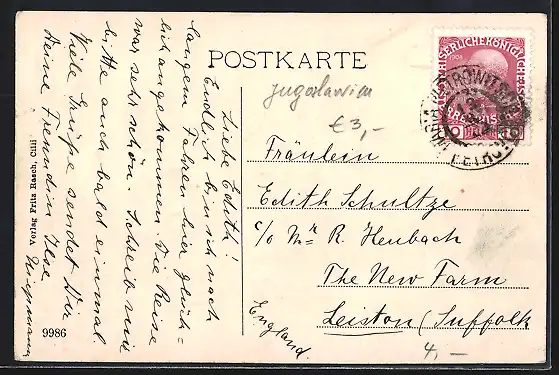 POSTKARTE
Jugoslawien
€ 3,-
Liebe Edith!
Endlich bin ich nach
langem Fahren hier glück=
lich angekommen. Die Reise
war sehr schön. Schreib mir
bitte auch bald einmal.
Viele Grüße sendet Dir
Deine Freundin Ilse
Fräulein
Edith Schultze
c/o Mr R. Heubach
The New Farm
Leiston (Suffolk
England
4,-
Verlag Fritz Rasch, Cilli
9986
1908